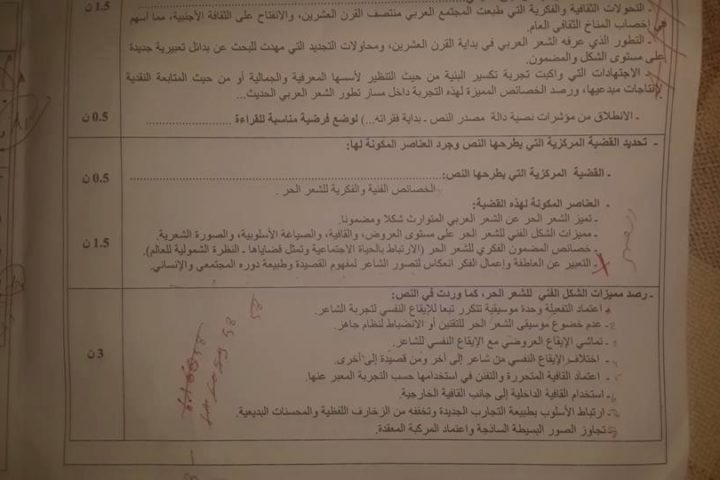 - التحولات الثقافية والفكرية التي طبعت المجتمع العربي منتصف القرن العشرين، والانفتاح على الثقافة الأجنبية، مما أسهم
في إخصاب المناخ الثقافي العام.
1.5 ن
- التطور الذي عرفه الشعر العربي في بداية القرن العشرين، ومحاولات التجديد التي مهدت للبحث عن بدائل تعبيرية جديدة
على مستوى الشكل والمضمون.
- الاجتهادات التي واكبت تجربة تكسير البنية من حيث التنظير لأسسها المعرفية والجمالية أو من حيث المتابعة النقدية
لإنتاجات مبدعيها، ورصد الخصائص المميزة لهذه التجربة داخل مسار تطور الشعر العربي الحديث...
- الانطلاق من مؤشرات نصية دالة مصدر النص - بداية فقراته...) لوضع فرضية مناسبة للقراءة ................
0.5 ن
- تحديد القضية المركزية التي يطرحها النص وجرد العناصر المكونة لها:
- القضية المركزية التي يطرحها النص:................
0.5 ن
الخصائص الفنية والفكرية للشعر الحر .
- العناصر المكونة لهذه القضية:
- تميز الشعر الحر عن الشعر العربي المتوارث شكلا ومضمونا.
- مميزات الشكل الفني للشعر الحر على مستوى العروض، والقافية، والصياغة الأسلوبية، والصورة الشعرية.
1.5 ن
- خصائص المضمون الفكري للشعر الحر (الارتباط بالحياة الاجتماعية وتمثل قضاياها - النظرة الشمولية للعالم).
- التعبير عن العاطفة وإعمال الفكر انعكاس لتصور الشاعر لمفهوم القصيدة وطبيعة دوره المجتمعي والإنساني.
- رصد مميزات الشكل الفني للشعر الحر، كما وردت في النص:
- اعتماد التفعيلة وحدة موسيقية تتكرر تبعا للإيقاع النفسي لتجربة الشاعر.
- عدم خضوع موسيقى الشعر الحر للتقنين أو الانضباط لنظام جاهز.
- تماشي الإيقاع العروضي مع الإيقاع النفسي للشاعر.
- اختلاف الإيقاع النفسي من شاعر إلى آخر ومن قصيدة إلى أخرى.
3 ن
- اعتماد القافية المتحررة والتفنن في استخدامها حسب التجربة المعبر عنها.
- استخدام القافية الداخلية إلى جانب القافية الخارجية.
- ارتباط الأسلوب بطبيعة التجارب الجديدة وتخففه من الزخارف اللفظية والمحسنات البديعية.
- تجاوز الصور البسيطة الساذجة واعتماد المركبة المعقدة.